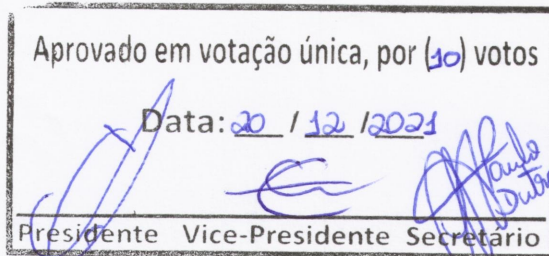 Aprovado em votação única, por (10) votos
Data: 20 / 12 /2021
Paulo
Presidente Vice-Presidente Secretário